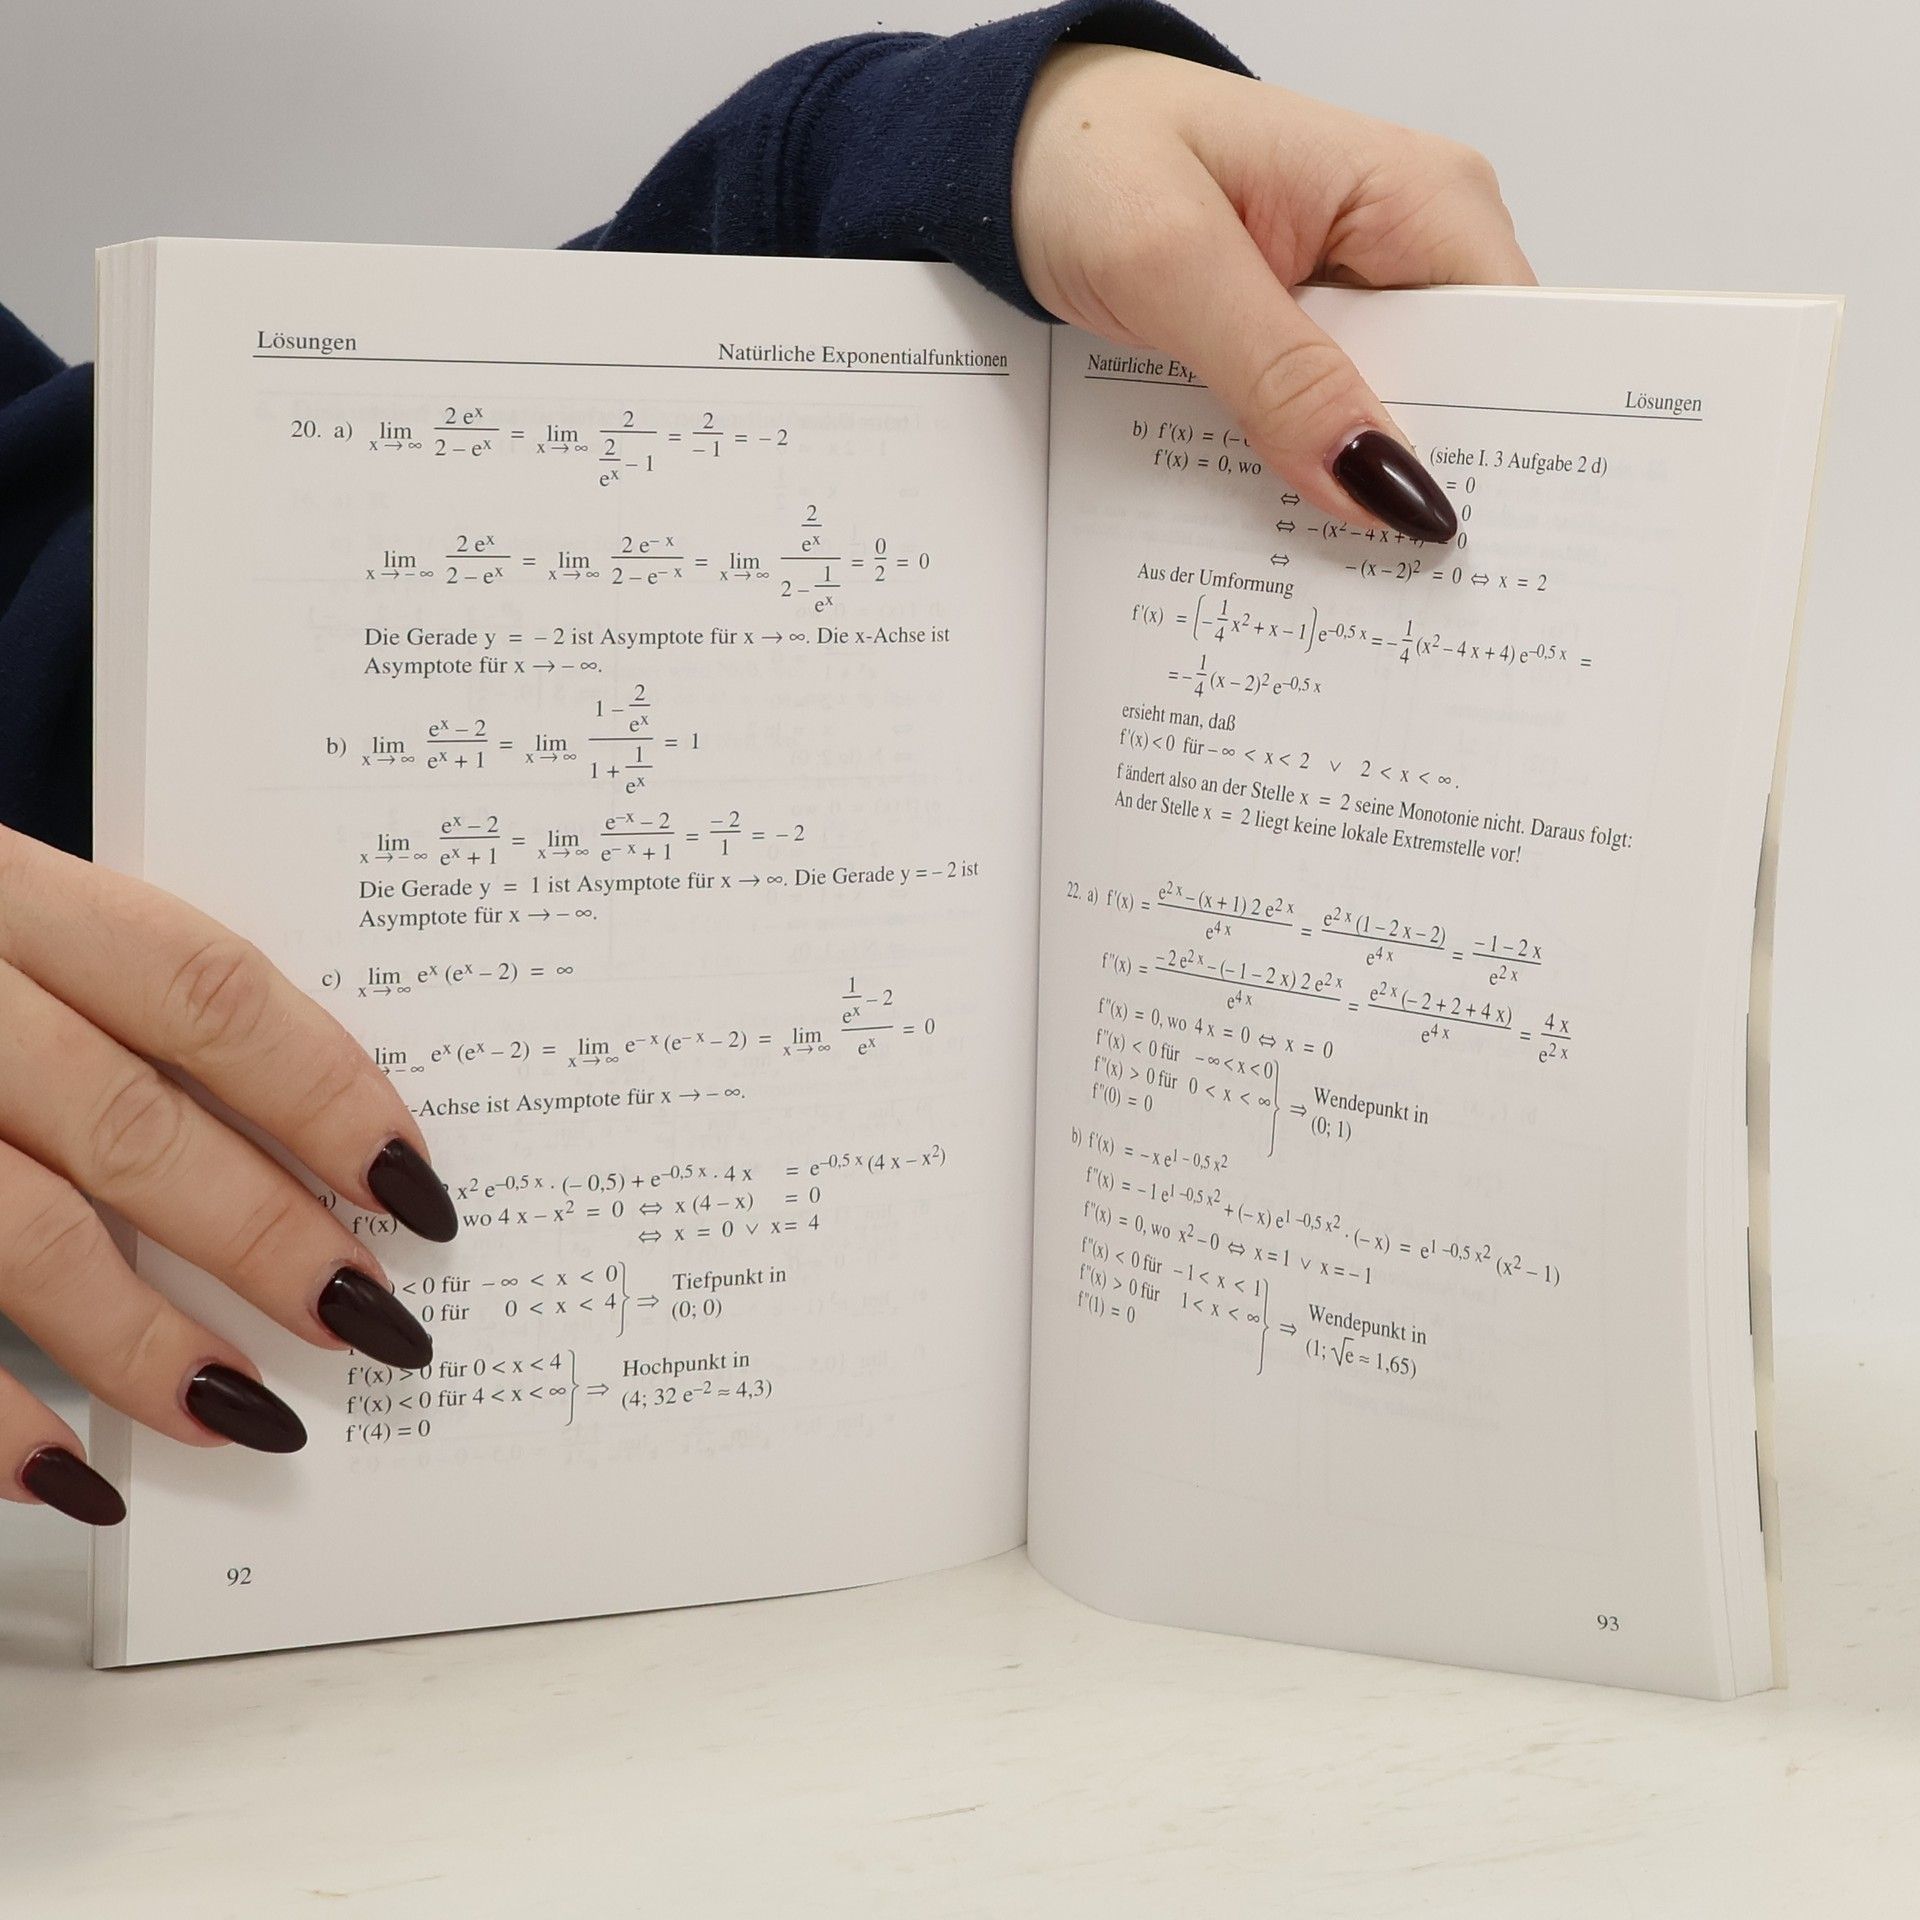 Lösungen
Natürliche Exponentialfunktionen
20. a) lim x→∞ 2 eˣ / (2 – eˣ) = lim x→∞ 2 / (2/eˣ – 1) = 2 / –1 = – 2
lim x→–∞ 2 eˣ / (2 – eˣ) = lim x→∞ 2 e⁻ˣ / (2 – e⁻ˣ) = lim x→∞ (2/eˣ) / (2 – 1/eˣ) = 0/2 = 0
Die Gerade y = – 2 ist Asymptote für x → ∞. Die x-Achse ist
Asymptote für x → – ∞.
b) lim x→∞ (eˣ – 2) / (eˣ + 1) = lim x→∞ (1 – 2/eˣ) / (1 + 1/eˣ) = 1
lim x→–∞ (eˣ – 2) / (eˣ + 1) = lim x→∞ (e⁻ˣ – 2) / (e⁻ˣ + 1) = –2/1 = – 2
Die Gerade y = 1 ist Asymptote für x → ∞. Die Gerade y = – 2 ist
Asymptote für x → – ∞.
c) lim x→∞ eˣ (eˣ – 2) = ∞
lim →–∞ eˣ (eˣ – 2) = lim x→∞ e⁻ˣ (e⁻ˣ – 2) = lim x→∞ (1/eˣ – 2) / eˣ = 0
-Achse ist Asymptote für x → – ∞.
a) x² e^(–0,5 x) · (– 0,5) + e^(–0,5 x) · 4 x = e^(–0,5 x) (4 x – x²)
f'(x) wo 4 x – x² = 0 ⇔ x (4 – x) = 0
⇔ x = 0 ∨ x = 4
) < 0 für – ∞ < x < 0
0 für 0 < x < 4
} ⇒ Tiefpunkt in
(0; 0)
f'(x) > 0 für 0 < x < 4
f'(x) < 0 für 4 < x < ∞
f'(4) = 0
} ⇒ Hochpunkt in
(4; 32 e⁻² ≈ 4,3)
92
Natürliche Exp
Lösungen
b) f'(x) = (– (siehe I. 3 Aufgabe 2 d)
f'(x) = 0, wo = 0
⇔ 0
⇔ – (x² – 4 x + 0
⇔ – (x – 2)² = 0 ⇔ x = 2
Aus der Umformung
f'(x) = (–1/4 x² + x – 1) e^(–0,5 x) = –1/4 (x² – 4 x + 4) e^(–0,5 x) =
= –1/4 (x – 2)² e^(–0,5 x)
ersieht man, daß
f'(x) < 0 für – ∞ < x < 2 ∨ 2 < x < ∞.
f ändert also an der Stelle x = 2 seine Monotonie nicht. Daraus folgt:
An der Stelle x = 2 liegt keine lokale Extremstelle vor!
22. a) f'(x) = (e^(2 x) – (x + 1) 2 e^(2 x)) / e^(4 x) = e^(2 x) (1 – 2 x – 2) / e^(4 x) = (– 1 – 2 x) / e^(2 x)
f"(x) = (– 2 e^(2 x) – (– 1 – 2 x) 2 e^(2 x)) / e^(4 x) = e^(2 x) (– 2 + 2 + 4 x) / e^(4 x) = 4 x / e^(2 x)
f"(x) = 0, wo 4 x = 0 ⇔ x = 0
f"(x) < 0 für – ∞ < x < 0
f"(x) > 0 für 0 < x < ∞
f"(0) = 0
} ⇒ Wendepunkt in
(0; 1)
b) f'(x) = – x e^(1 – 0,5 x²)
f"(x) = – 1 e^(1 – 0,5 x²) + (– x) e^(1 – 0,5 x²) · (– x) = e^(1 – 0,5 x²) (x² – 1)
f"(x) = 0, wo x² – 0 ⇔ x = 1 ∨ x = – 1
f"(x) < 0 für – 1 < x < 1
f"(x) > 0 für 1 < x < ∞
f"(1) = 0
} ⇒ Wendepunkt in
(1; √e ≈ 1,65)
93